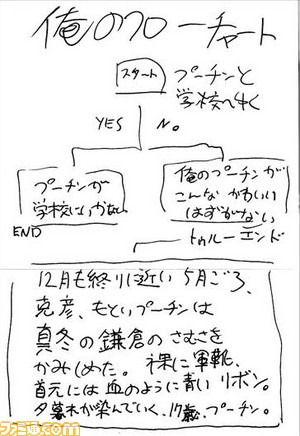 俺のフローチャート
スタート
プーチンと
学校へ行く
YES
No
プーチンが
学校にいかない
END
俺のプーチンが
こんなかわいい
はずがない
トゥルーエンド
12月も終りに近い5月ごろ、
克彦、もといプーチンは
真冬の鎌倉のさむさを
かみしめた。裸に軍靴、
首元には血のように青いリボン。
夕暮れが染んでいく、17歳、プーチン。
ファミ通.com